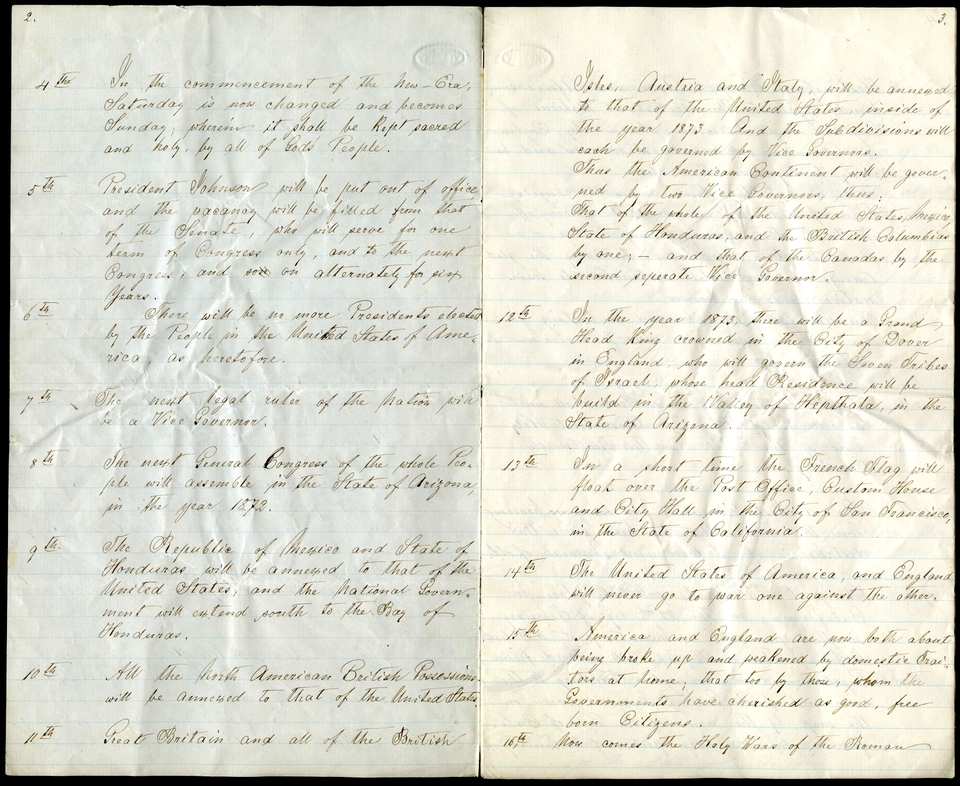 2.
4th In the commencement of the New-Era,
Saturday is now changed and becomes
Sunday, wherein it shall be kept sacred
and holy, by all of Gods People.
5th President Johnson will be put out of office
and the vacancy will be filled from that
of the Senate, who will serve for one
term of Congress only, and to the next
Congress, and soon on alternately for six
Years.
6th There will be no more Presidents elected
by the People in the United States of Ame-
rica, as heretofore.
7th The next legal ruler of the Nation will
be a Vice Governor.
8th The next General Congress of the whole Peo-
ple will assemble in the State of Arizona,
in the year 1872.
9th The Republic of Mexico and State of
Honduras will be annexed to that of the
United States, and the National Govern-
ment will extend south to the Bay of
Honduras.
10th All the North American British Possessions
will be annexed to that of the United States.
11th Great Britain and all of the British
3.
Isles, Austria and Italy, will be annexed
to that of the United States, inside of
the year 1873. And the Subdivisions will
each be governed by Vice Governors.
Thus the American Continent will be gover-
ned by two Vice Governors, thus:
That of the whole of the United States, Mexico,
State of Honduras, and the British Columbias
by one; – and that of the Canadas by the
second seperate Vice Governor.
12th In the year 1873, there will be a Grand
Head King crowned in the City of Dover
in England, who will govern the Seven Tribes
of Israel, whose head Residence will be
build in the Valley of Hepthala, in the
State of Arizona.
13th In a short time the French Flag will
float over the Post Office, Custom House
and City Hall in the City of San Francisco,
in the State of California.
14th The United States of America, and England
will never go to war one against the other.
15th America and England are now both about
being broke up and weakened by domestic Trai-
tors at home, that too by those, whom the
Governments have cherished as good, free
born Citizens.
16th Now comes the Holy Wars of the Roman